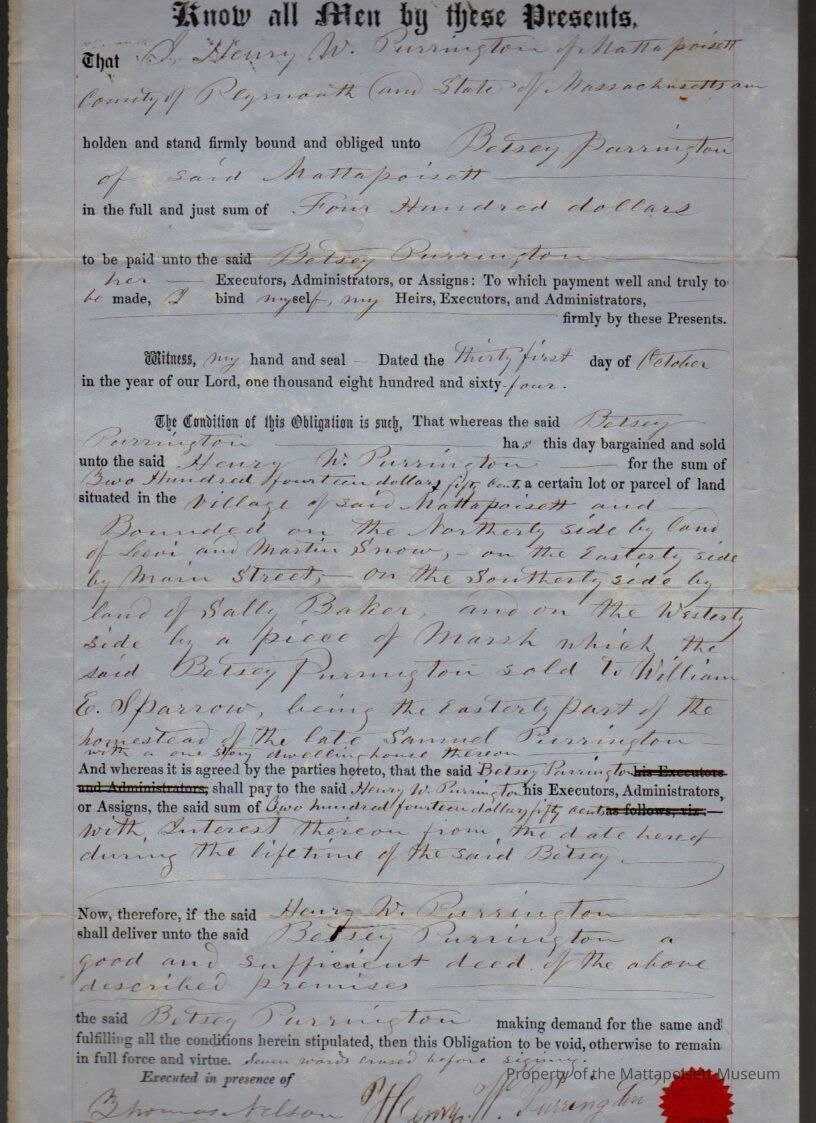 Know all Men by these Presents,
That I, Henry W. Purrington of Mattapoisett
County of Plymouth and State of Massachusetts am
holden and stand firmly bound and obliged unto Betsey Purrington
of said Mattapoisett
in the full and just sum of Four Hundred dollars
to be paid unto the said Betsey Purrington
her Executors, Administrators, or Assigns: To which payment well and truly to
be made, I bind myself, my Heirs, Executors, and Administrators,
firmly by these Presents.
Witness, my hand and seal Dated the thirty first day of October
in the year of our Lord, one thousand eight hundred and sixty-four.
The Condition of this Obligation is such, That whereas the said Betsey
Purrington has this day bargained and sold
unto the said Henry W. Purrington for the sum of
Two Hundred fourteen dollars fifty cents a certain lot or parcel of land
situated in the Village of said Mattapoisett and
Bounded on the Northerly side by land
of Levi and Martin Snow, - on the Easterly side
by Main Street, - on the Southerly side by
land of Sally Baker, - and on the Westerly
side by a piece of Marsh which the
said Betsey Purrington sold to William
E. Sparrow, being the Easterly part of the
homestead of the late Samuel Purrington
with a one story dwelling house thereon
And whereas it is agreed by the parties hereto, that the said Betsey Purrington his Executors
and Administrators, shall pay to the said Henry W. Purrington his Executors, Administrators,
or Assigns, the said sum of Two hundred fourteen dollars fifty cents as follows, viz.
with Interest thereon from the date hereof
during the lifetime of the said Betsey
Now, therefore, if the said Henry W. Purrington
shall deliver unto the said Betsey Purrington a
good and sufficient deed of the above
described premises
the said Betsey Purrington making demand for the same and
fulfilling all the conditions herein stipulated, then this Obligation to be void, otherwise to remain
in full force and virtue. Seven words erased before signing.
Property of the Mattapoisett Museum
Executed in presence of
Thomas Nelson Henry W. Purrington